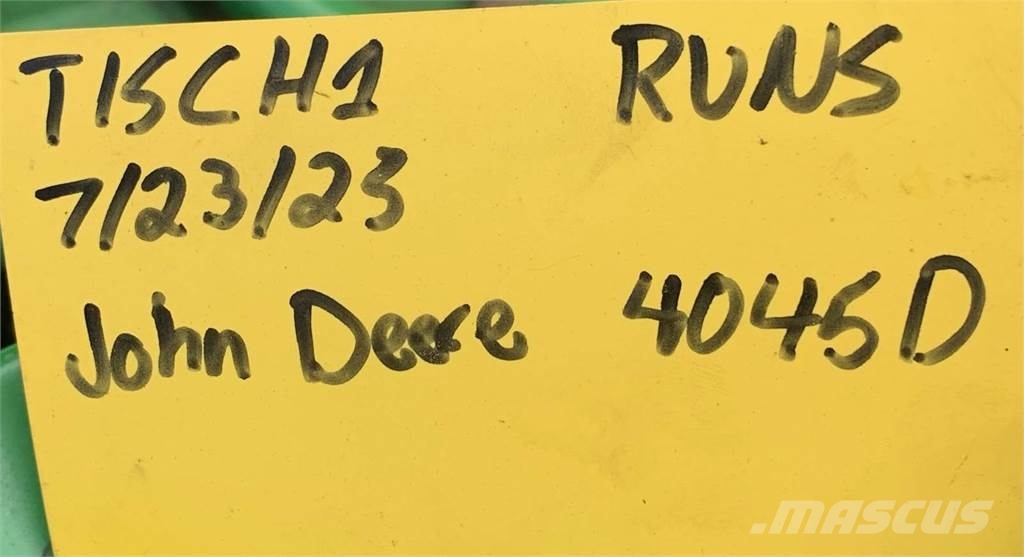 TISCH1 RUNS
7/23/23
John Deere 4045D
.MASCUS